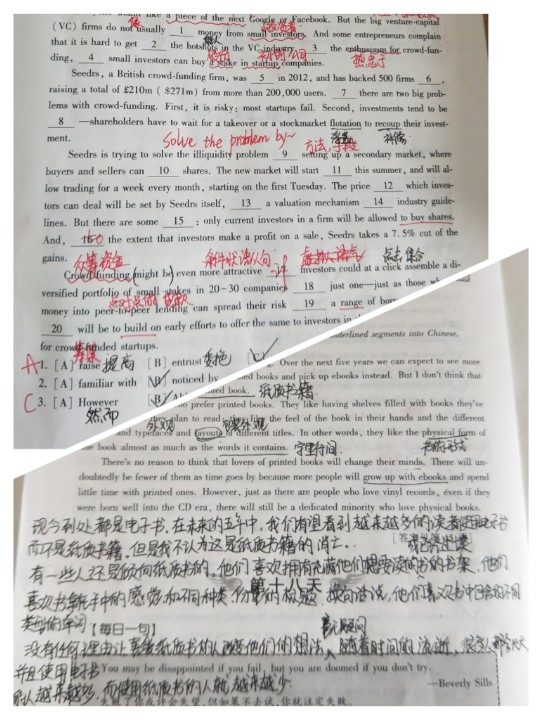 would like a piece of the next Google or Facebook. But the big venture-capital
(VC) firms do not usually 1 money from small investors. And some entrepreneurs complain
that it is hard to get 2 the hotshots in the VC industry. 3 the enthusiasm for crowd-fun-
ding, 4 small investors can buy a stake in startup companies.
Seedrs, a British crowd-funding firm, was 5 in 2012, and has backed 500 firms 6 ,
raising a total of £210m ( $271m) from more than 200,000 users. 7 there are two big prob-
lems with crowd-funding. First, it is risky: most startups fail. Second, investments tend to be
8 —shareholders have to wait for a takeover or a stockmarket flotation to recoup their invest-
ment.
Solve the problem by~
方法，手段
补偿
Seedrs is trying to solve the illiquidity problem 9 setting up a secondary market, where
buyers and sellers can 10 shares. The new market will start 11 this summer, and will al-
low trading for a week every month, starting on the first Tuesday. The price 12 which inves-
tors can deal will be set by Seedrs itself, 13 a valuation mechanism 14 industry guide-
lines. But there are some 15 : only current investors in a firm will be allowed to buy shares.
And, 16 the extent that investors make a profit on a sale, Seedrs takes a 7.5% cut of the
gains.
众筹资金
条件状语从句
虚拟语气
点击 集合
Crowd-funding might be even more attractive if investors could at a click assemble a di-
versified portfolio of small stakes in 20-30 companies 18 just one—just as those who
money into peer-to-peer lending can spread their risk 19 a range of bor
20 will be to build on early efforts to offer the same to investors in
for crowd-funded startups.
underlined segments into Chinese.
A 1. [A] raise 提高 [B] entrust 委托
2. [A] familiar with [B] noticed by
C 3. [A] However [B]
然而
Over the next five years we can expect to see more
ed books and pick up ebooks instead. But I don't think that
printed book. 纸质书籍
who prefer printed books. They like having shelves filled with books they've
they plan to read the feel of the book in their hands and the different
and typefaces and layouts of different titles. In other words, they like the physical form of
the book almost as much as the words it contains. 字里行间
There's no reason to think that lovers of printed books will change their minds. There will un-
doubtedly be fewer of them as time goes by because more people will grow up with ebooks and spend
little time with printed ones. However, just as there are people who love vinyl records, even if they
were born well into the CD era, there will still be a dedicated minority who love physical books.
现今到处都是电子书，在未来的五年中，我们有望看到越来越多的读者
而不是纸质书籍，但是我不认为这是纸质书籍的消亡.
有一些人还是倾向纸质书的，他们喜欢拥有充满他们想要读的书的书架，他们
第十八天
喜欢书拿手中的感觉和不同种类
换句话说，他们喜欢书中包含的不同
类型的单词
【每日一句】
没有任何理由让喜爱纸质书的人改变他们的想法，
随着时间的流逝，
并且使用电子书
You may be disappointed if you fail, but you are doomed if you don't try.
的人越来越多，而使用纸质书的人就越来越少
—Beverly Sills
失败了你或许会失望，但如果不去试，你就注定失败。